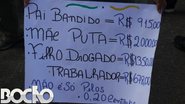 PAI BANDIDO = R$ 915,00
MÃE PUTA = R$ 2.000,00
FILHO DROGADO = R$ 1.350,00
TRABALHADOR = R$ 678,00
NÃO é Só Pelos
0,20 Centavos
BOCÃO